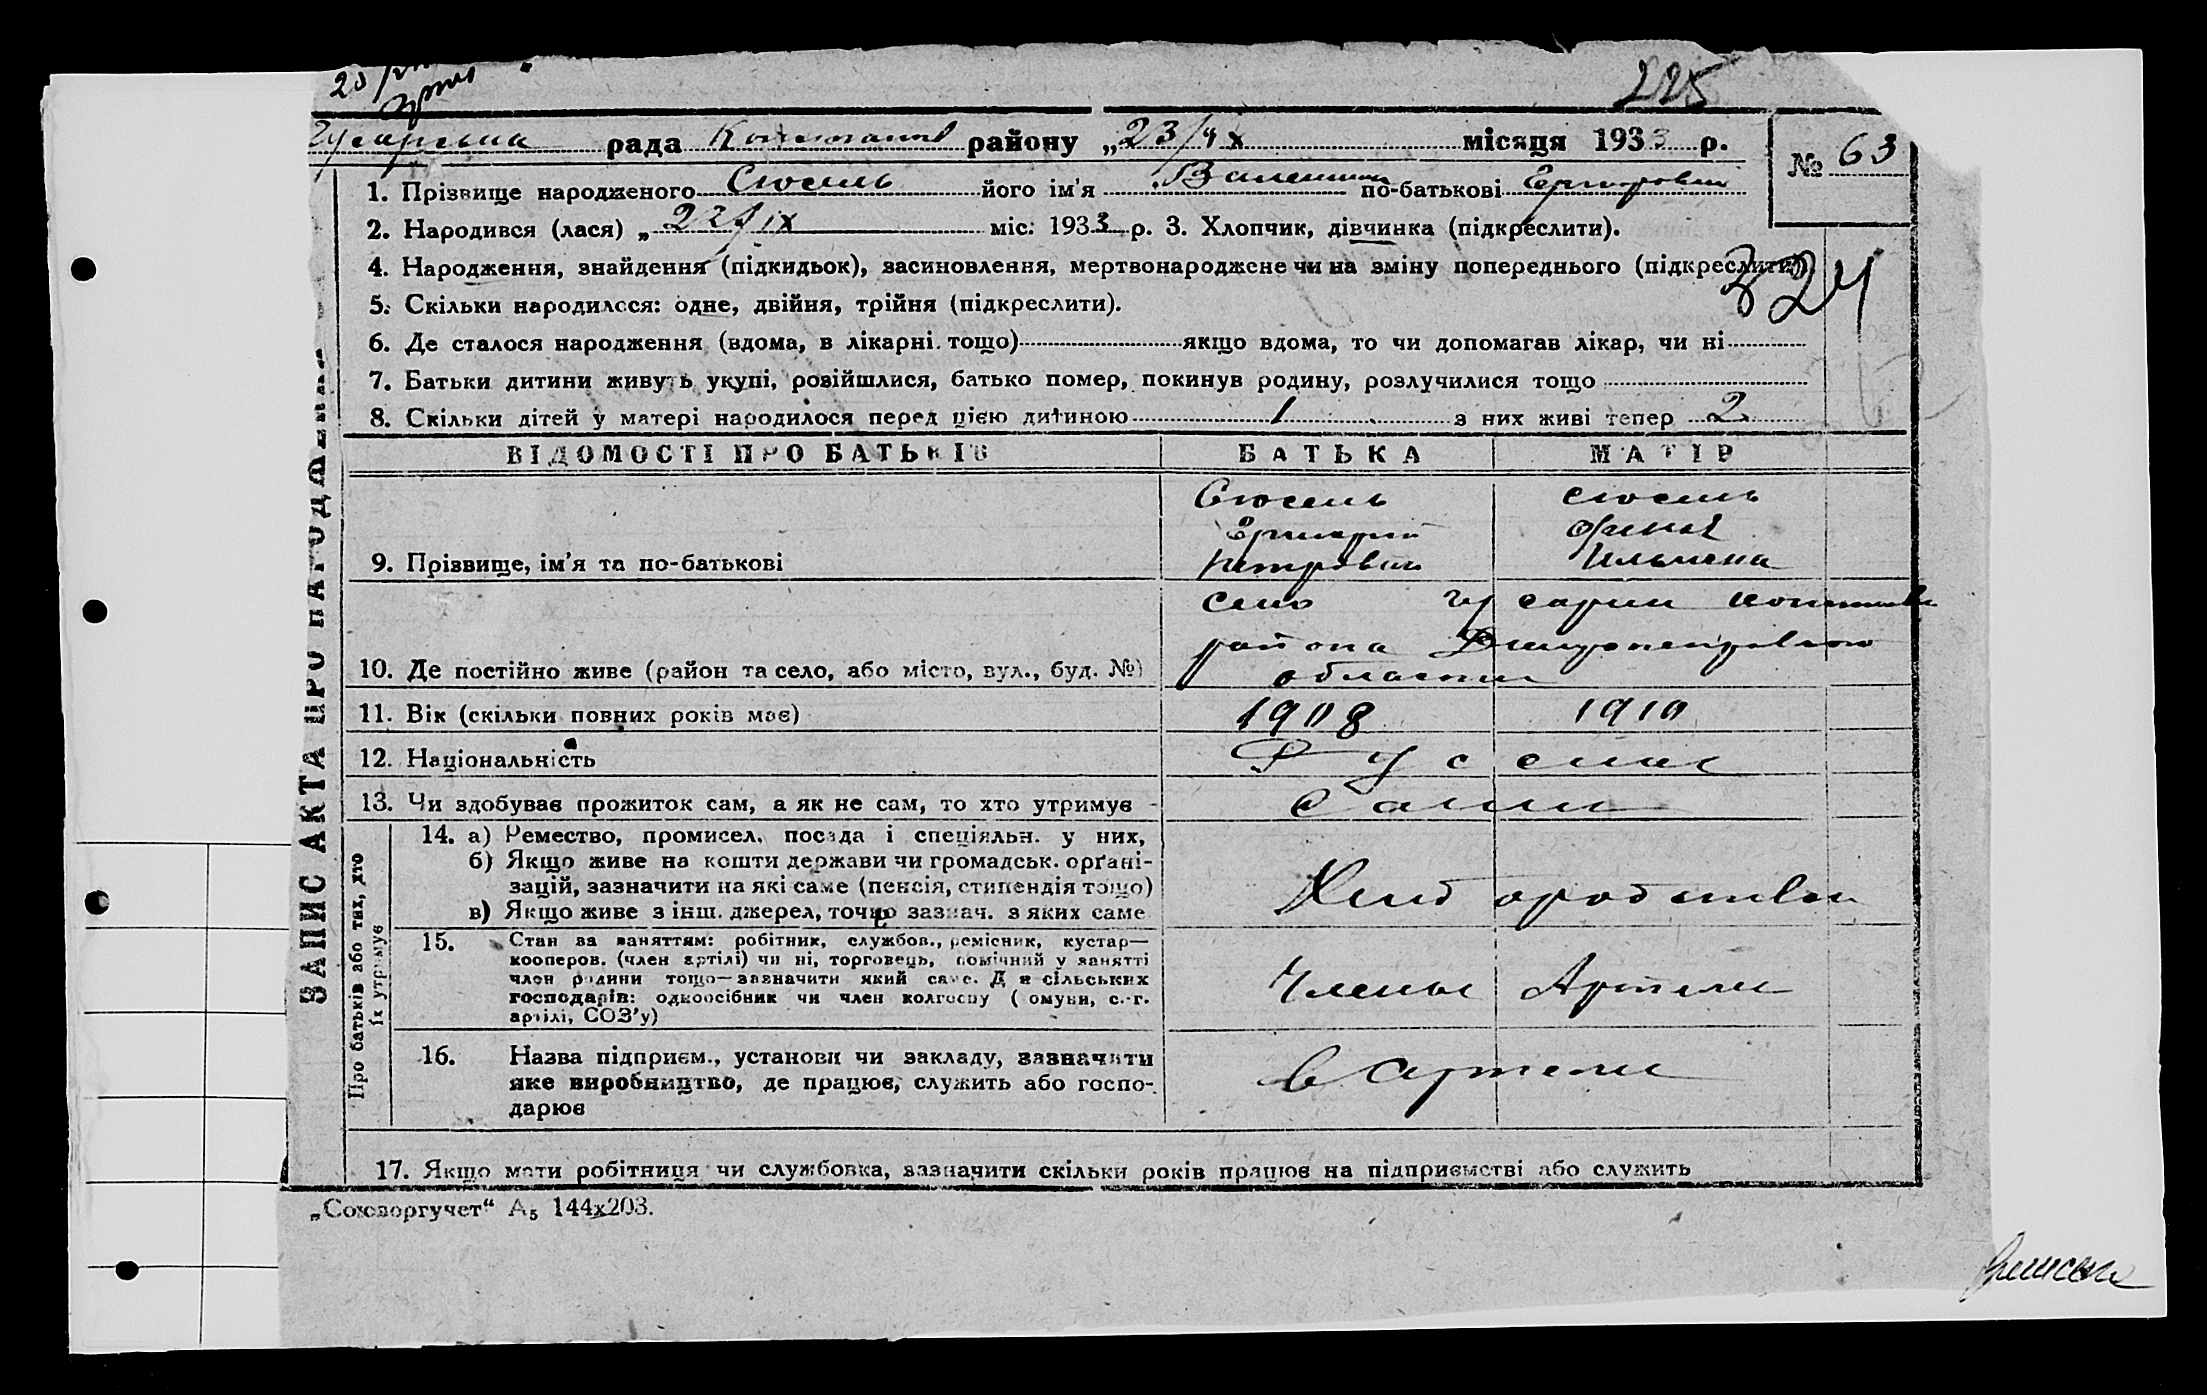 225
рада району „23/ місяця 1933 р.
№ 63
1. Прізвище народженого Сюсель його ім'я по-батькові
2. Народився (лася) „ 22/IX міс. 1933 р. 3. Хлопчик, дівчинка (підкреслити).
4. Народження, знайдення (підкидьок), засиновлення, мертвонароджене чи на зміну попереднього (підкреслити)
324
5. Скільки народилося: одне, двійня, трійня (підкреслити).
6. Де сталося народження (вдома, в лікарні тощо) якщо вдома, то чи допомагав лікар, чи ні
7. Батьки дитини живуть укупі, розійшлися, батько помер, покинув родину, розлучилися тощо
8. Скільки дітей у матері народилося перед цією дитиною 1 з них живі тепер 2
ЗАПИС АКТА ПРО НАРОДЖЕННЯ
ВІДОМОСТІ ПРО БАТЬКІВ БАТЬКА МАТІР
Сюсель Сюсель
Григорий
9. Прізвище, ім'я та по-батькові Петрович
Село
района Днепропетровской
10. Де постійно живе (район та село, або місто, вул., буд. №) области
11. Вік (скільки повних років має) 1908 1910
12. Національність Русские
13. Чи здобуває прожиток сам, а як не сам, то хто утримує Сами
Про батьків або тих, хто їх утримує
14. а) Ремество, промисел, посада і спеціяльн. у них,
б) Якщо живе на кошти держави чи громадськ. орґані-
зацій, зазначити на які саме (пенсія, стипендія тощо)
в) Якщо живе з інш. джерел, точно зазнач. з яких саме
15. Стан за заняттям: робітник, службов., ремісник, кустар—
кооперов. (член артілі) чи ні, торговець, помічний у занятті
член родини тощо—зазначити який саме. Для сільських
господарів: одноосібник чи член колгоспу (комуни, с.-г.
артілі, СОЗ'у)
Члены Артели
16. Назва підприєм., установи чи закладу, зазначити
яке виробництво, де працює, служить або госпо-
дарює
в Артели
17. Якщо мати робітниця чи службовка, зазначити скільки років працює на підприємстві або служить
„Союзоргучет“ А5 144х203.